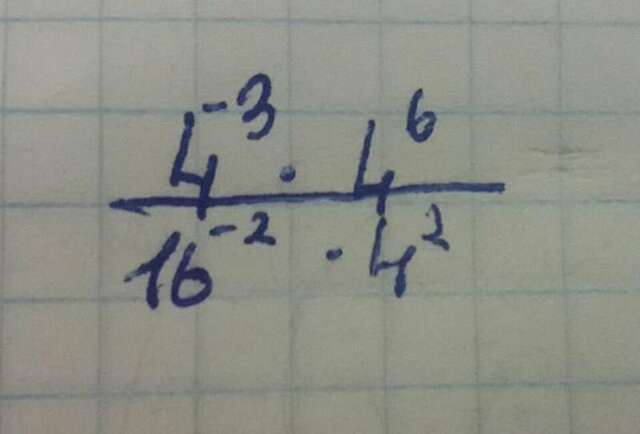 4⁻³ · 4⁶
16⁻² · 4²